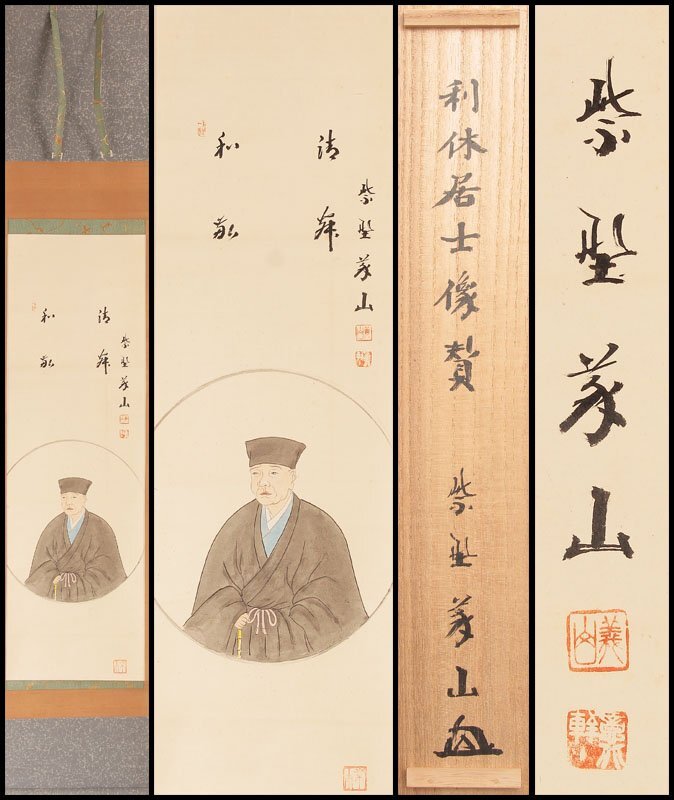 和敬
清寂
紫野義山
和敬
清寂
紫野義山
利休居士像賛
紫野義山
紫野義山
義山